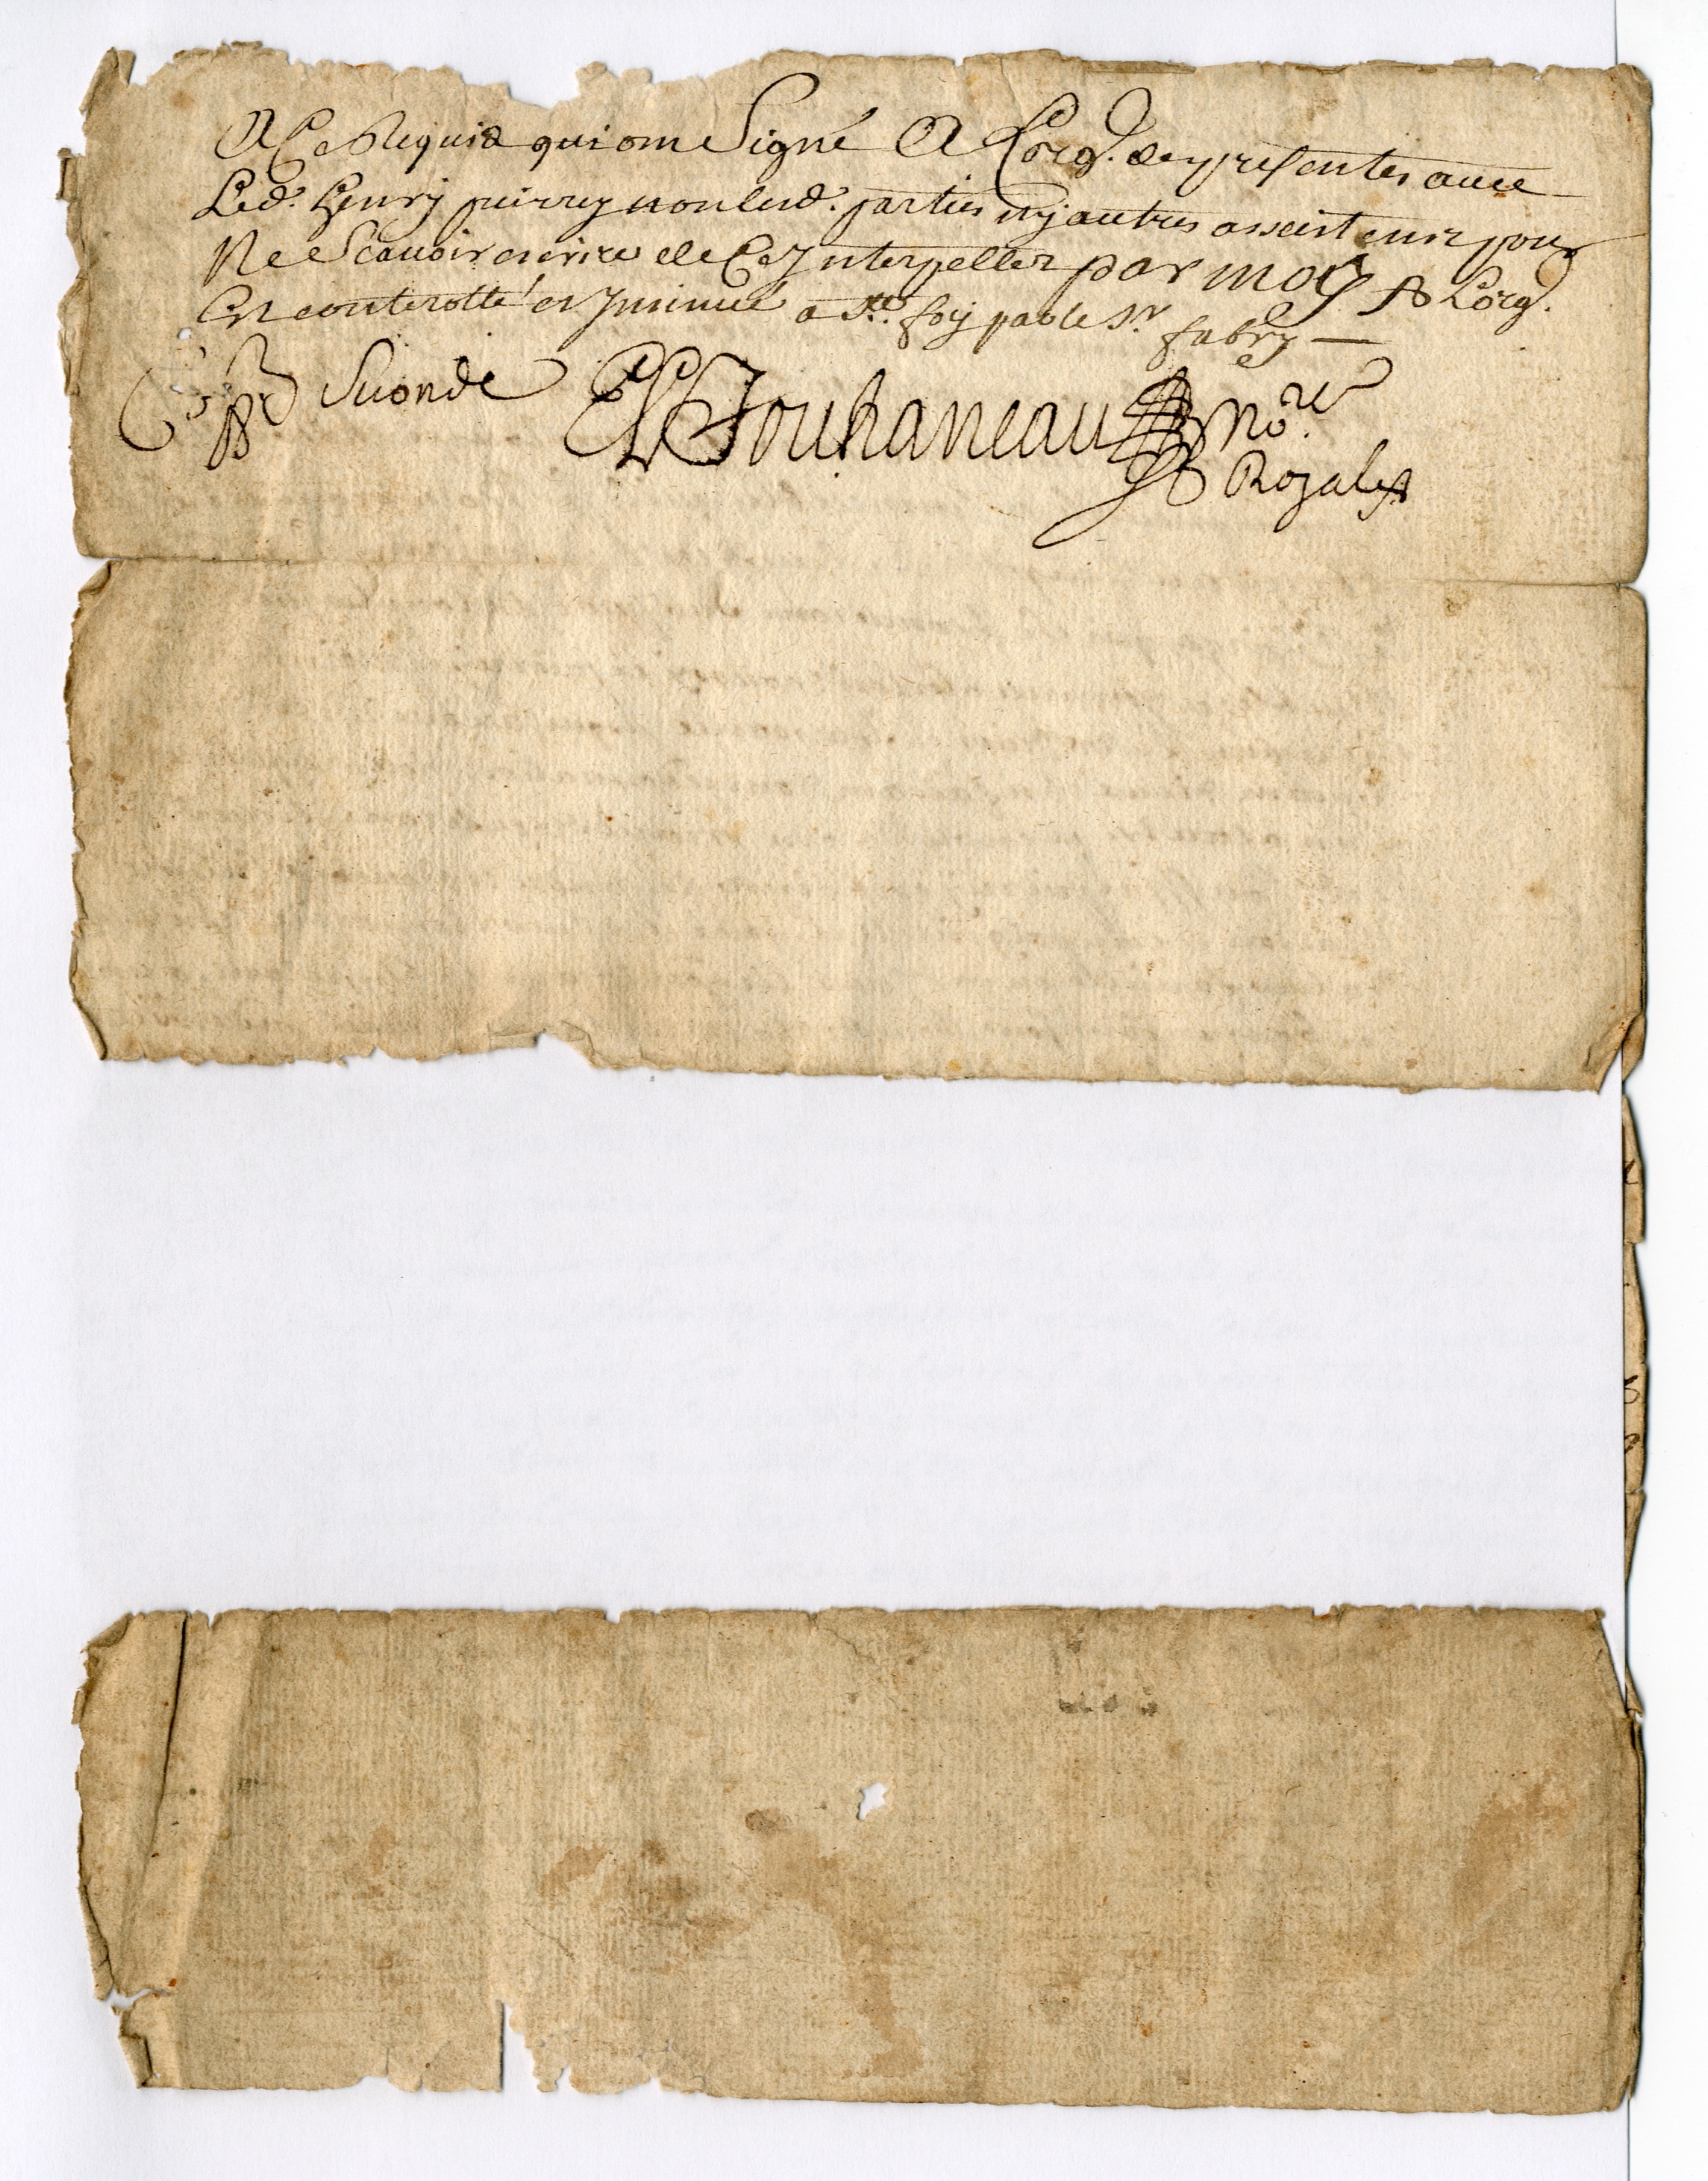 A Ce Requis qui ont Signé A Lorg. des presentes avec
Led. henry peirrey non lesd. parties ny autres assisteurs pour
Ne Scavoir escrire de Ce Interpellez par moy A Lorg.
Est conterollé et Insinué a Ste. foy par le Sr. fabry
Seconde Jouhaneau No.re
Royal